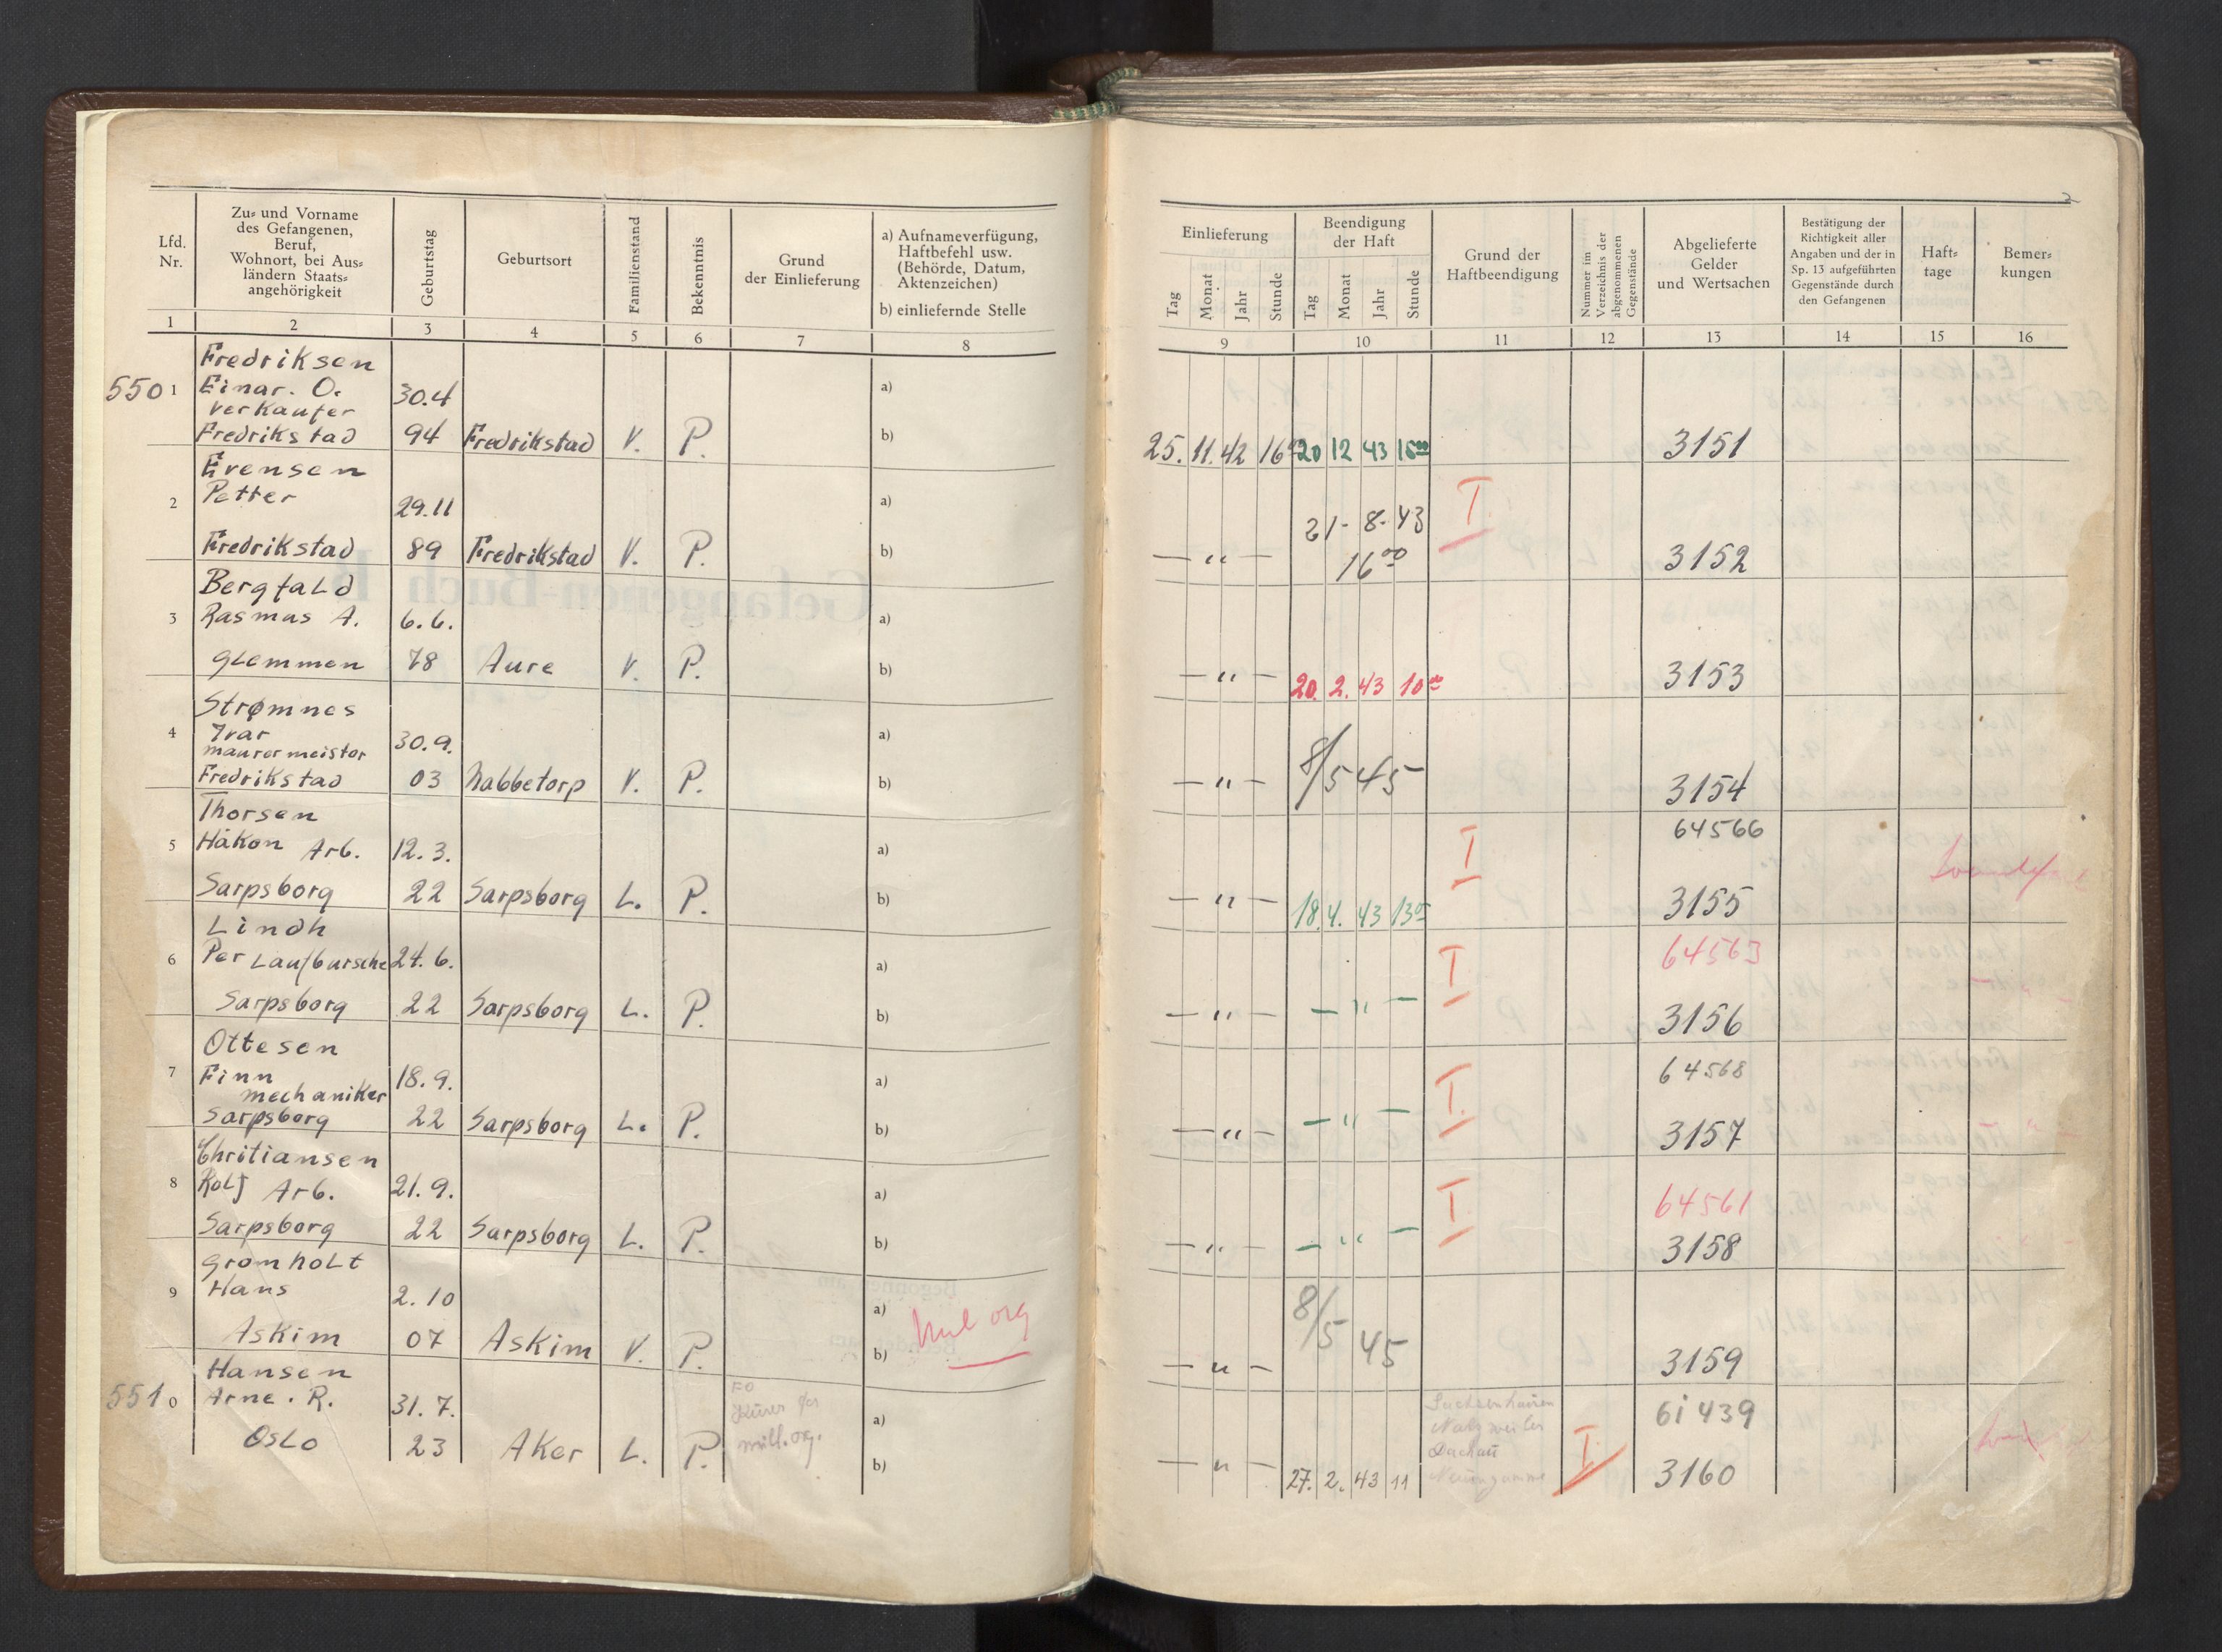 Lfd. Nr.
Zu= und Vorname
des Gefangenen,
Beruf,
Wohnort, bei Aus=
ländern Staats=
angehörigkeit
Geburtstag
Geburtsort
Familienstand
Bekenntnis
Grund
der Einlieferung
a) Aufnameverfügung,
Haftbefehl usw.
(Behörde, Datum,
Aktenzeichen)
b) einliefernde Stelle
1 2 3 4 5 6 7 8
Fredriksen
5501 Einar. O. 30.4 a)
verkaufer
Fredrikstad 94 Fredrikstad V. P. b)
Evensen
2 Petter 29.11 a)
Fredrikstad 89 Fredrikstad V. P. b)
Bergfald
3 Rasmus A. 6.6. a)
Glemmen 78 Aure V. P. b)
Strømnes
4 Ivar 30.9. a)
maurermeister
Fredrikstad 03 Nabbetorp V. P. b)
Thorsen
5 Håkon Arb. 12.3. a)
Sarpsborg 22 Sarpsborg L. P. b)
Lindh
6 Per Laufbursche 24.6. a)
Sarpsborg 22 Sarpsborg L. P. b)
Ottesen
7 Finn 18.9. a)
mechaniker
Sarpsborg 22 Sarpsborg L. P. b)
Chritiansen
8 Rolf Arb. 21.9. a)
Sarpsborg 22 Sarpsborg L. P. b)
Gromholt
9 Hans 2.10 a)
Mil org
Askim 07 Askim V. P. b)
Hansen
5510 Arne. R. 31.7. a)
FO
Kurer for
mill.org.
Oslo 23 Aker L. P. b)
2
Einlieferung
Tag Monat Jahr Stunde
Beendigung
der Haft
Tag Monat Jahr Stunde
Grund der
Haftbeendigung
Nummer im
Verzeichnis der
abgenommenen
Gegenstände
Abgelieferte
Gelder
und Wertsachen
Bestätigung der
Richtigkeit aller
Angaben und der in
Sp. 13 aufgeführten
Gegenstände durch
den Gefangenen
Haft=
tage
Bemer=
kungen
9 10 11 12 13 14 15 16
25. 11. 42 16 20 12 43 16 3151
21- 8- 43 I
— " — 16 00 3152
— " — 20. 2. 43 10 00 3153
— " — 8/5 45 3154
I 64566
— " — 18. 4. 43 13 3155
I 64563
— " — — " — 3156
I 64568
— " — — " — 3157
I 64561
— " — — " — 3158
8/5 45
— " — 3159
Sachsenhausen 61439
Natzweiler
Dachau I
— " — 27. 2. 43 11 Neuengamme 3160